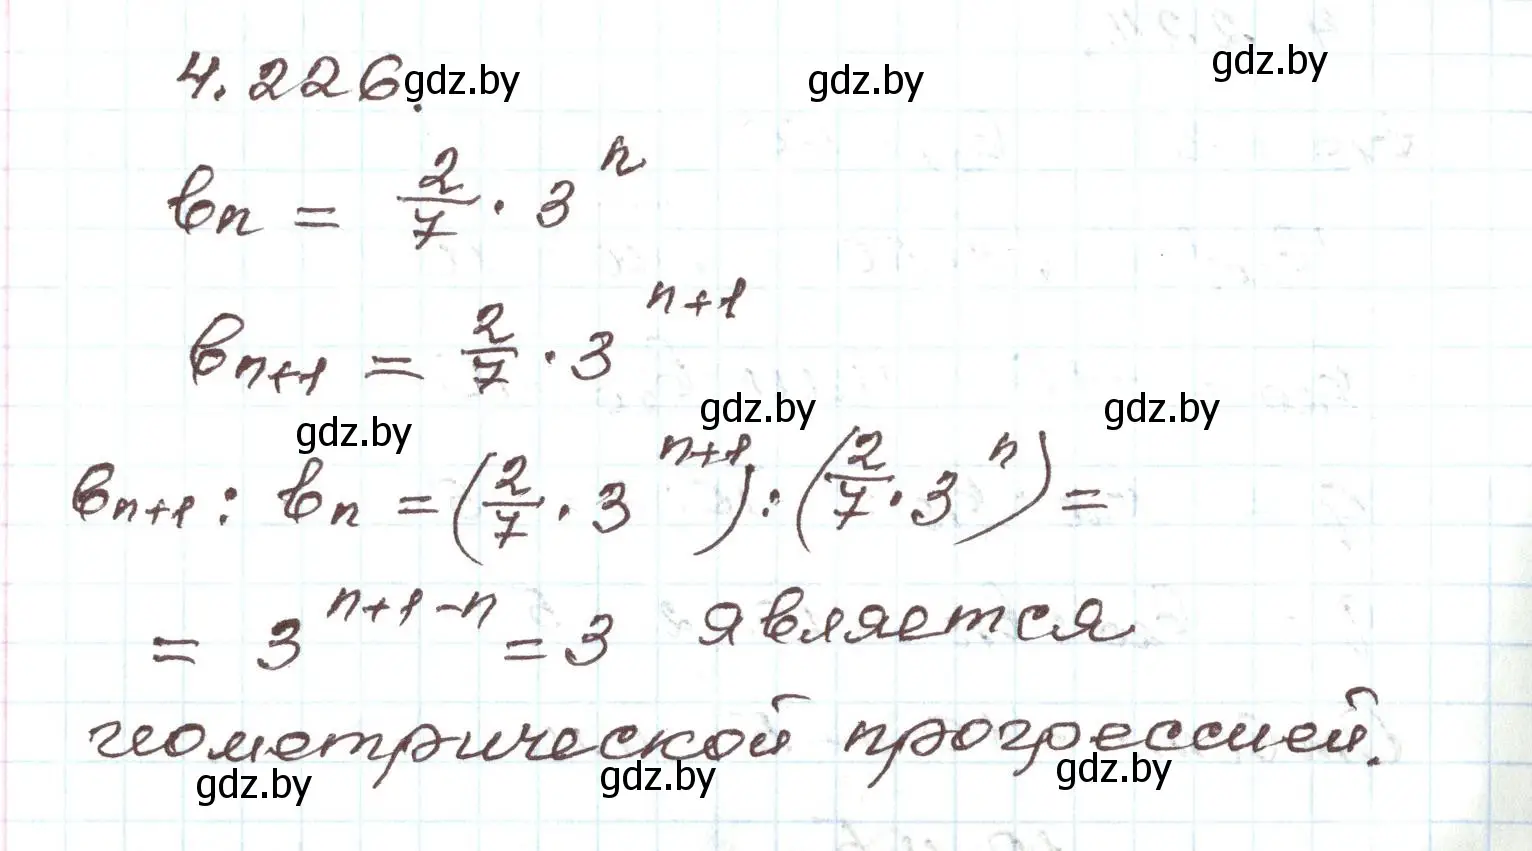 4.226. gdz.by gdz.by gdz.by
bₙ = 2/7 · 3ⁿ
bₙ₊₁ = 2/7 · 3ⁿ⁺¹
gdz.by gdz.by gdz.by
bₙ₊₁ : bₙ = (2/7 · 3ⁿ⁺¹) : (2/7 · 3ⁿ) =
= 3ⁿ⁺¹⁻ⁿ = 3 является
геометрической прогрессией.
gdz.by gdz.by gdz.by